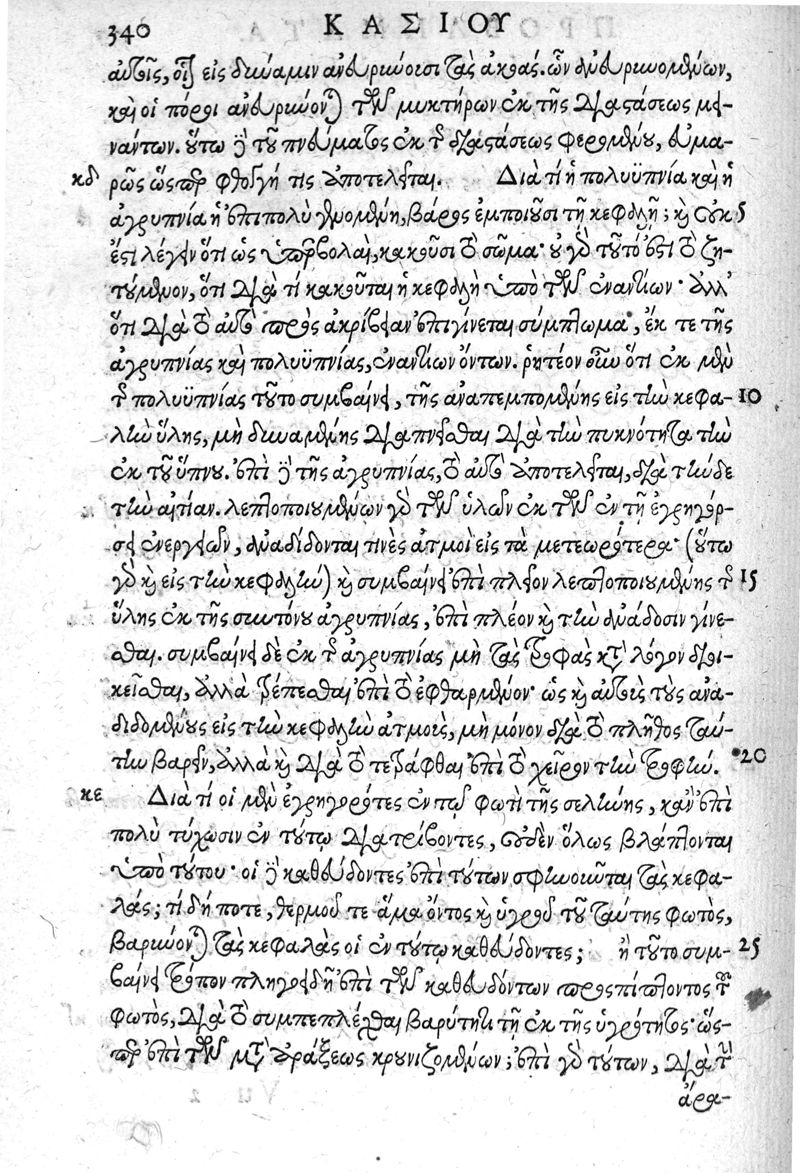 340 ΚΑΣΙΟΥ
αὐτοῖς, οἷον εἰς δύναμιν ἀνευρύνουσι τὰς ἀκοάς. ὧν ἀνευρυνομένων,
καὶ οἱ πόροι ἀνευρύονται τῶν μυκτήρων ἐκ τῆς διαστάσεως μεί-
ναντων. οὕτω δὲ τοῦ πνεύματος ἐκ τῆς διαστάσεως φερομένου, εὐμα-
κδ ρῶς ὥσπερ φθογγή τις ἀποτελεῖται. Διὰ τί ἡ πολυϋπνία καὶ ἡ
ἀγρυπνία ἡ ἐπιπολὺ γενομένη, βάρος ἐμποιοῦσι τῇ κεφαλῇ; καὶ οὐκ 5
ἔστι λέγειν ὅτι ὡς ὑπερβολαὶ, κακοῦσι τὸ σῶμα· οὐ γὰρ τοῦτό ἐστι τὸ ζη-
τούμενον, ὅτι διὰ τί κακοῦται ἡ κεφαλὴ ὑπὸ τῶν ἐναντίων· ἀλλ'
ὅτι διὰ τὸ αὐτὸ πρὸς ἀκρίβειαν ἐπιγίνεται σύμπτωμα, ἔκ τε τῆς
ἀγρυπνίας καὶ πολυϋπνίας, ἐναντίων ὄντων. ῥητέον οὖν ὅτι ἐκ μὲν
τῆς πολυϋπνίας τοῦτο συμβαίνει, τῆς ἀναπεμπομένης εἰς τὴν κεφα- 10
λὴν ὕλης, μὴ δυναμένης διαπνεῖσθαι διὰ τὴν πυκνότητα τὴν
ἐκ τοῦ ὕπνου. ἐπὶ δὲ τῆς ἀγρυπνίας, τὸ αὐτὸ ἀποτελεῖται, διὰ τήνδε
τὴν αἰτίαν. λεπτοποιουμένων γὰρ τῶν ὑλῶν ἐκ τῶν ἐν τῇ ἐγρηγόρ-
σει ἐνεργειῶν, ἀναδίδονται τινὲς ἀτμοὶ εἰς τὰ μετεωρότερα· (οὕτω
γὰρ καὶ εἰς τὴν κεφαλὴν) καὶ συμβαίνει ἐπὶ πλεῖον λεπτοποιουμένης τῆς 15
ὕλης ἐκ τῆς συντόνου ἀγρυπνίας, ἐπὶ πλέον καὶ τὴν ἀνάδοσιν γίνε-
σθαι. συμβαίνει δὲ ἐκ τῆς ἀγρυπνίας μὴ τὰς τροφὰς κατὰ λόγον διοι-
κεῖσθαι, ἀλλὰ τρέπεσθαι ἐπὶ τὸ ἐφθαρμένον· ὡς καὶ αὐτοὺς τοὺς ἀνα-
διδομένους εἰς τὴν κεφαλὴν ἀτμοὺς, μὴ μόνον διὰ τὸ πλῆθος ταύ-
την βαρεῖν, ἀλλὰ καὶ διὰ τὸ τετράφθαι ἐπὶ τὸ χεῖρον τὴν τροφὴν. 20
κε Διὰ τί οἱ μὲν ἐγρηγορότες ἐν τῷ φωτὶ τῆς σελήνης, κἂν ἐπὶ
πολὺ τύχωσιν ἐν τούτῳ διατρίβοντες, οὐδὲν ὅλως βλάπτονται
ὑπὸ τούτου· οἱ δὲ καθεύδοντες ἐπὶ τούτων σφηνοῦνται τὰς κεφα-
λάς; τί δή ποτε, θερμοῦ τε ἅμα ὄντος καὶ ὑγροῦ τοῦ ταύτης φωτὸς,
βαρύνονται τὰς κεφαλὰς οἱ ἐν τούτῳ καθεύδοντες; ἢ τοῦτο συμ- 25
βαίνει τρόπον πληγοειδῆ ἐπὶ τῶν καθευδόντων προσπίπτοντος τοῦ
φωτὸς, διὰ τὸ συμπεπλέχθαι βαρύτητι τῇ ἐκ τῆς ὑγρότητος· ὥς-
περ ἐπὶ τῶν μετὰ ταράξεως κρουνιζομένων; ἐπὶ γὰρ τούτων, διὰ τοῦ
ἀρα-